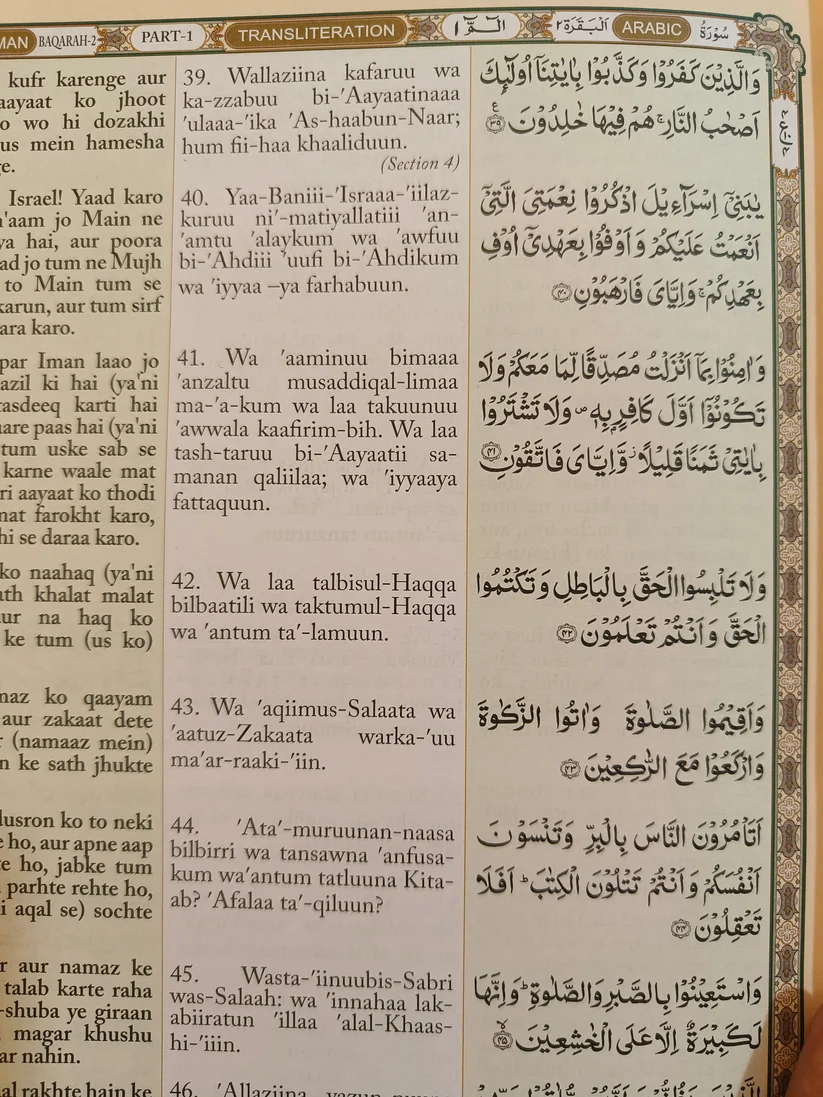 MAN BAQARAH-2 PART-1 TRANSLITERATION الٓمّٓ ١ اَلْبَقَرَة ٢ ARABIC سُوْرَةُ
kufr karenge aur
aayaat ko jhoot
wo hi dozakhi
us mein hamesha
Israel! Yaad karo
n'aam jo Main ne
ya hai, aur poora
ad jo tum ne Mujh
to Main tum se
karun, aur tum sirf
ara karo.
par Iman laao jo
azil ki hai (ya'ni
tasdeeq karti hai
aare paas hai (ya'ni
tum uske sab se
karne waale mat
ri aayaat ko thodi
mat farokht karo,
hi se daraa karo.
ko naahaq (ya'ni
ath khalat malat
aur na haq ko
ke tum (us ko)
maz ko qaayam
aur zakaat dete
r (namaaz mein)
n ke sath jhukte
dusron ko to neki
e ho, aur apne aap
te ho, jabke tum
parhte rehte ho,
i aqal se) sochte
r aur namaz ke
talab karte raha
-shuba ye giraan
magar khushu
ar nahin.
al rakhte hain ke
39. Wallaziina kafaruu wa
ka-zzabuu bi-'Aayaatinaaa
'ulaaa-'ika 'As-haabun-Naar;
hum fii-haa khaaliduun.
(Section 4)
40. Yaa-Baniii-'Israaa-'iilaz-
kuruu ni'-matiyallatiii 'an-
'amtu 'alaykum wa 'awfuu
bi-'Ahdiii 'uufi bi-'Ahdikum
wa 'iyyaa –ya farhabuun.
41. Wa 'aaminuu bimaaa
'anzaltu musaddiqal-limaa
ma-'a-kum wa laa takuunuu
'awwala kaafirim-bih. Wa laa
tash-taruu bi-'Aayaatii sa-
manan qaliilaa; wa 'iyyaaya
fattaquun.
42. Wa laa talbisul-Haqqa
bilbaatili wa taktumul-Haqqa
wa 'antum ta'-lamuun.
43. Wa 'aqiimus-Salaata wa
'aatuz-Zakaata warka-'uu
ma'ar-raaki-'iin.
44. 'Ata'-muruunan-naasa
bilbirri wa tansawna 'anfusa-
kum wa'antum tatluuna Kita-
ab? 'Afalaa ta'-qiluun?
45. Wasta-'iinuubis-Sabri
was-Salaah: wa 'innahaa lak-
abiiratun 'illaa 'alal-Khaas-
hi-'iiin.
46. 'Allaziina
وَالَّذِيْنَ كَفَرُوْا وَكَذَّبُوْا بِاٰيٰتِنَآ اُولٰٓئِكَ
اَصْحٰبُ النَّارِ ۚ هُمْ فِيْهَا خٰلِدُوْنَ ۝٣٩
يٰبَنِيْٓ اِسْرَآءِيْلَ اذْكُرُوْا نِعْمَتِيَ الَّتِيْٓ
اَنْعَمْتُ عَلَيْكُمْ وَاَوْفُوْا بِعَهْدِيْٓ اُوْفِ
بِعَهْدِكُمْ ۚ وَاِيَّايَ فَارْهَبُوْنِ ۝٤٠
وَاٰمِنُوْا بِمَآ اَنْزَلْتُ مُصَدِّقًا لِّمَا مَعَكُمْ وَلَا
تَكُوْنُوْٓا اَوَّلَ كَافِرٍۭ بِهٖ ۖ وَلَا تَشْتَرُوْا
بِاٰيٰتِيْ ثَمَنًا قَلِيْلًا ۡ وَّاِيَّايَ فَاتَّقُوْنِ ۝٤١
وَلَا تَلْبِسُوا الْحَقَّ بِالْبَاطِلِ وَتَكْتُمُوا
الْحَقَّ وَاَنْتُمْ تَعْلَمُوْنَ ۝٤٢
وَاَقِيْمُوا الصَّلٰوةَ وَاٰتُوا الزَّكٰوةَ
وَارْكَعُوْا مَعَ الرّٰكِعِيْنَ ۝٤٣
اَتَاْمُرُوْنَ النَّاسَ بِالْبِرِّ وَتَنْسَوْنَ
اَنْفُسَكُمْ وَاَنْتُمْ تَتْلُوْنَ الْكِتٰبَ ۗ اَفَلَا
تَعْقِلُوْنَ ۝٤٤
وَاسْتَعِيْنُوْا بِالصَّبْرِ وَالصَّلٰوةِ ۗ وَاِنَّهَا
لَكَبِيْرَةٌ اِلَّا عَلَى الْخٰشِعِيْنَ ۝٤٥